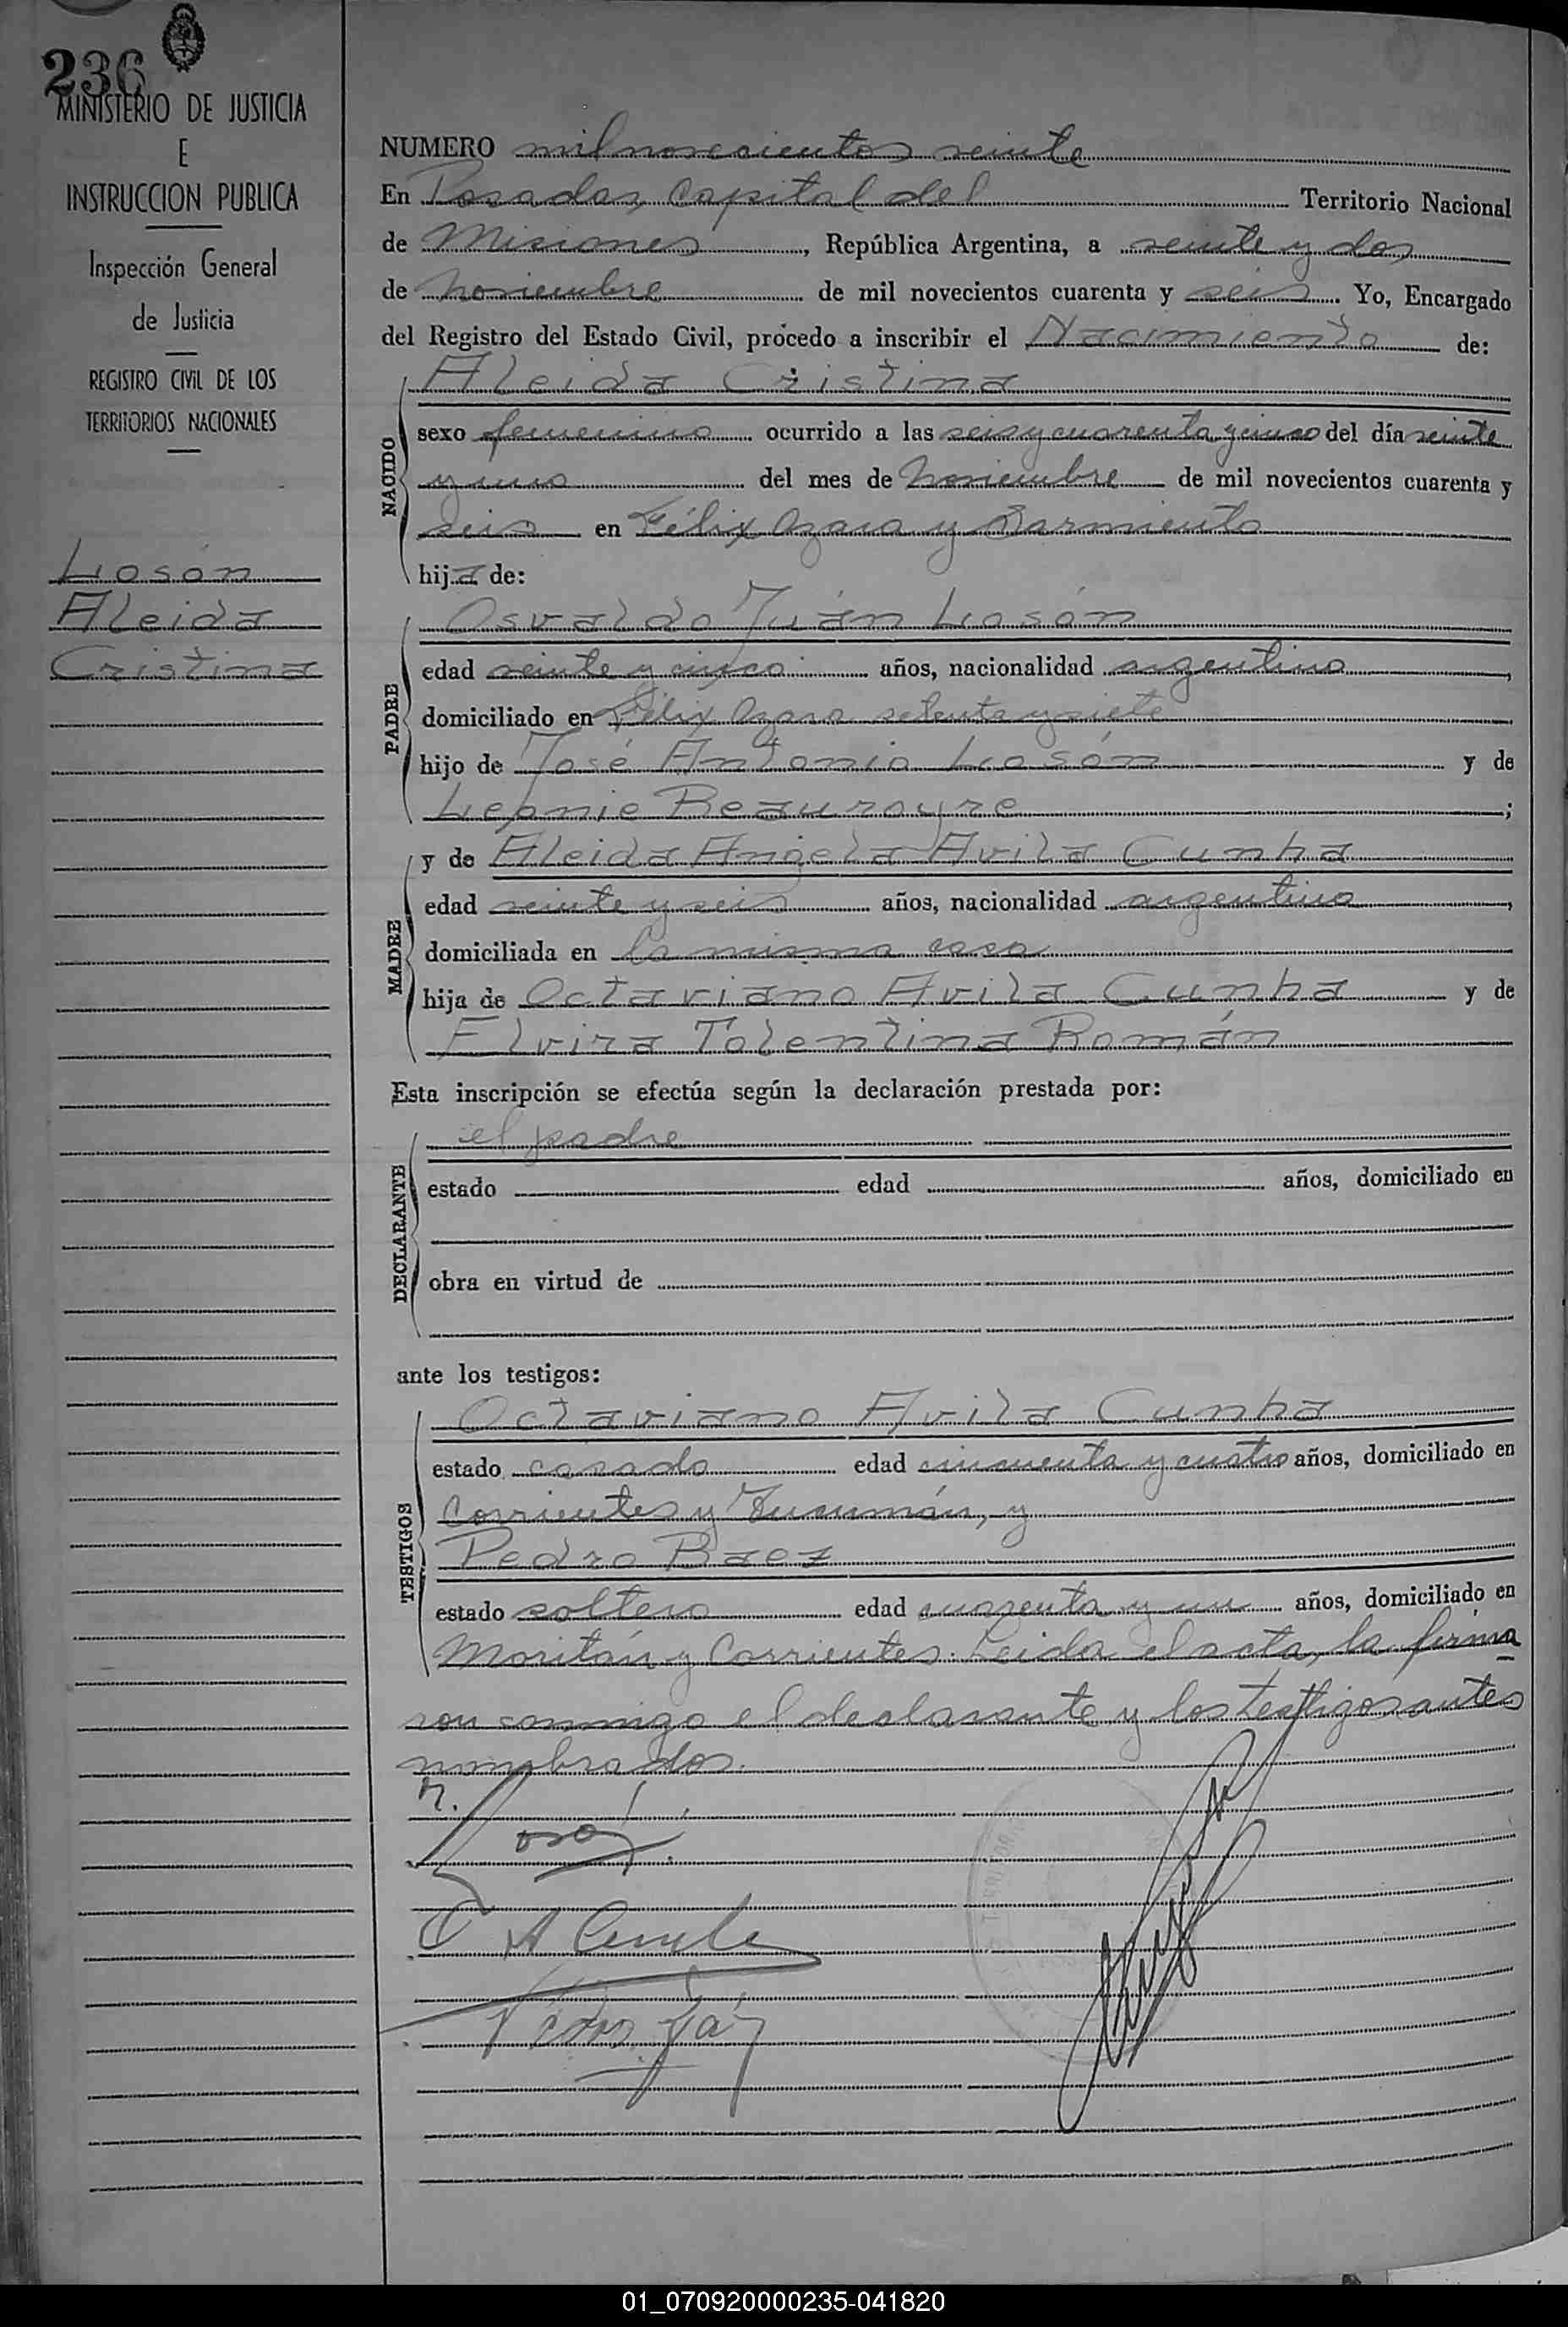 236
MINISTERIO DE JUSTICIA
E
INSTRUCCION PUBLICA
Inspección General
de Justicia
REGISTRO CIVIL DE LOS
TERRITORIOS NACIONALES
Losón
Aleida
Cristina
NUMERO mil novecientos veinte
En Posadas, Capital del Territorio Nacional
de Misiones, República Argentina, a veinte y dos
de noviembre de mil novecientos cuarenta y seis. Yo, Encargado
del Registro del Estado Civil, procedo a inscribir el Nacimiento de:
Aleida Cristina
NACIDO
sexo femenino ocurrido a las seis y cuarenta y cinco del día veinte
y uno del mes de noviembre de mil novecientos cuarenta y
seis en Félix Azara y Sarmiento
hija de:
Osvaldo Juán Losón
PADRE
edad veinte y cinco años, nacionalidad argentina,
domiciliado en Félix Azara setenta y siete
hijo de José Antonio Losón y de
Leonie Beauroyre;
y de Aleida Angela Avila Cunha
MADRE
edad veinte y seis años, nacionalidad argentina,
domiciliada en la misma casa
hija de Octaviano Avila Cunha y de
Elvira Tolentina Román
Esta inscripción se efectúa según la declaración prestada por:
el padre
DECLARANTE
estado edad años, domiciliado en
obra en virtud de
ante los testigos:
Octaviano Avila Cunha
TESTIGOS
estado casado edad cincuenta y cuatro años, domiciliado en
Corrientes y Tucumán, y
Pedro Baez
estado soltero edad cuarenta y un años, domiciliado en
Moritán y Corrientes. Leida el acta, la firma
ron conmigo el declarante y los testigos antes
nombrados.
01_070920000235-041820